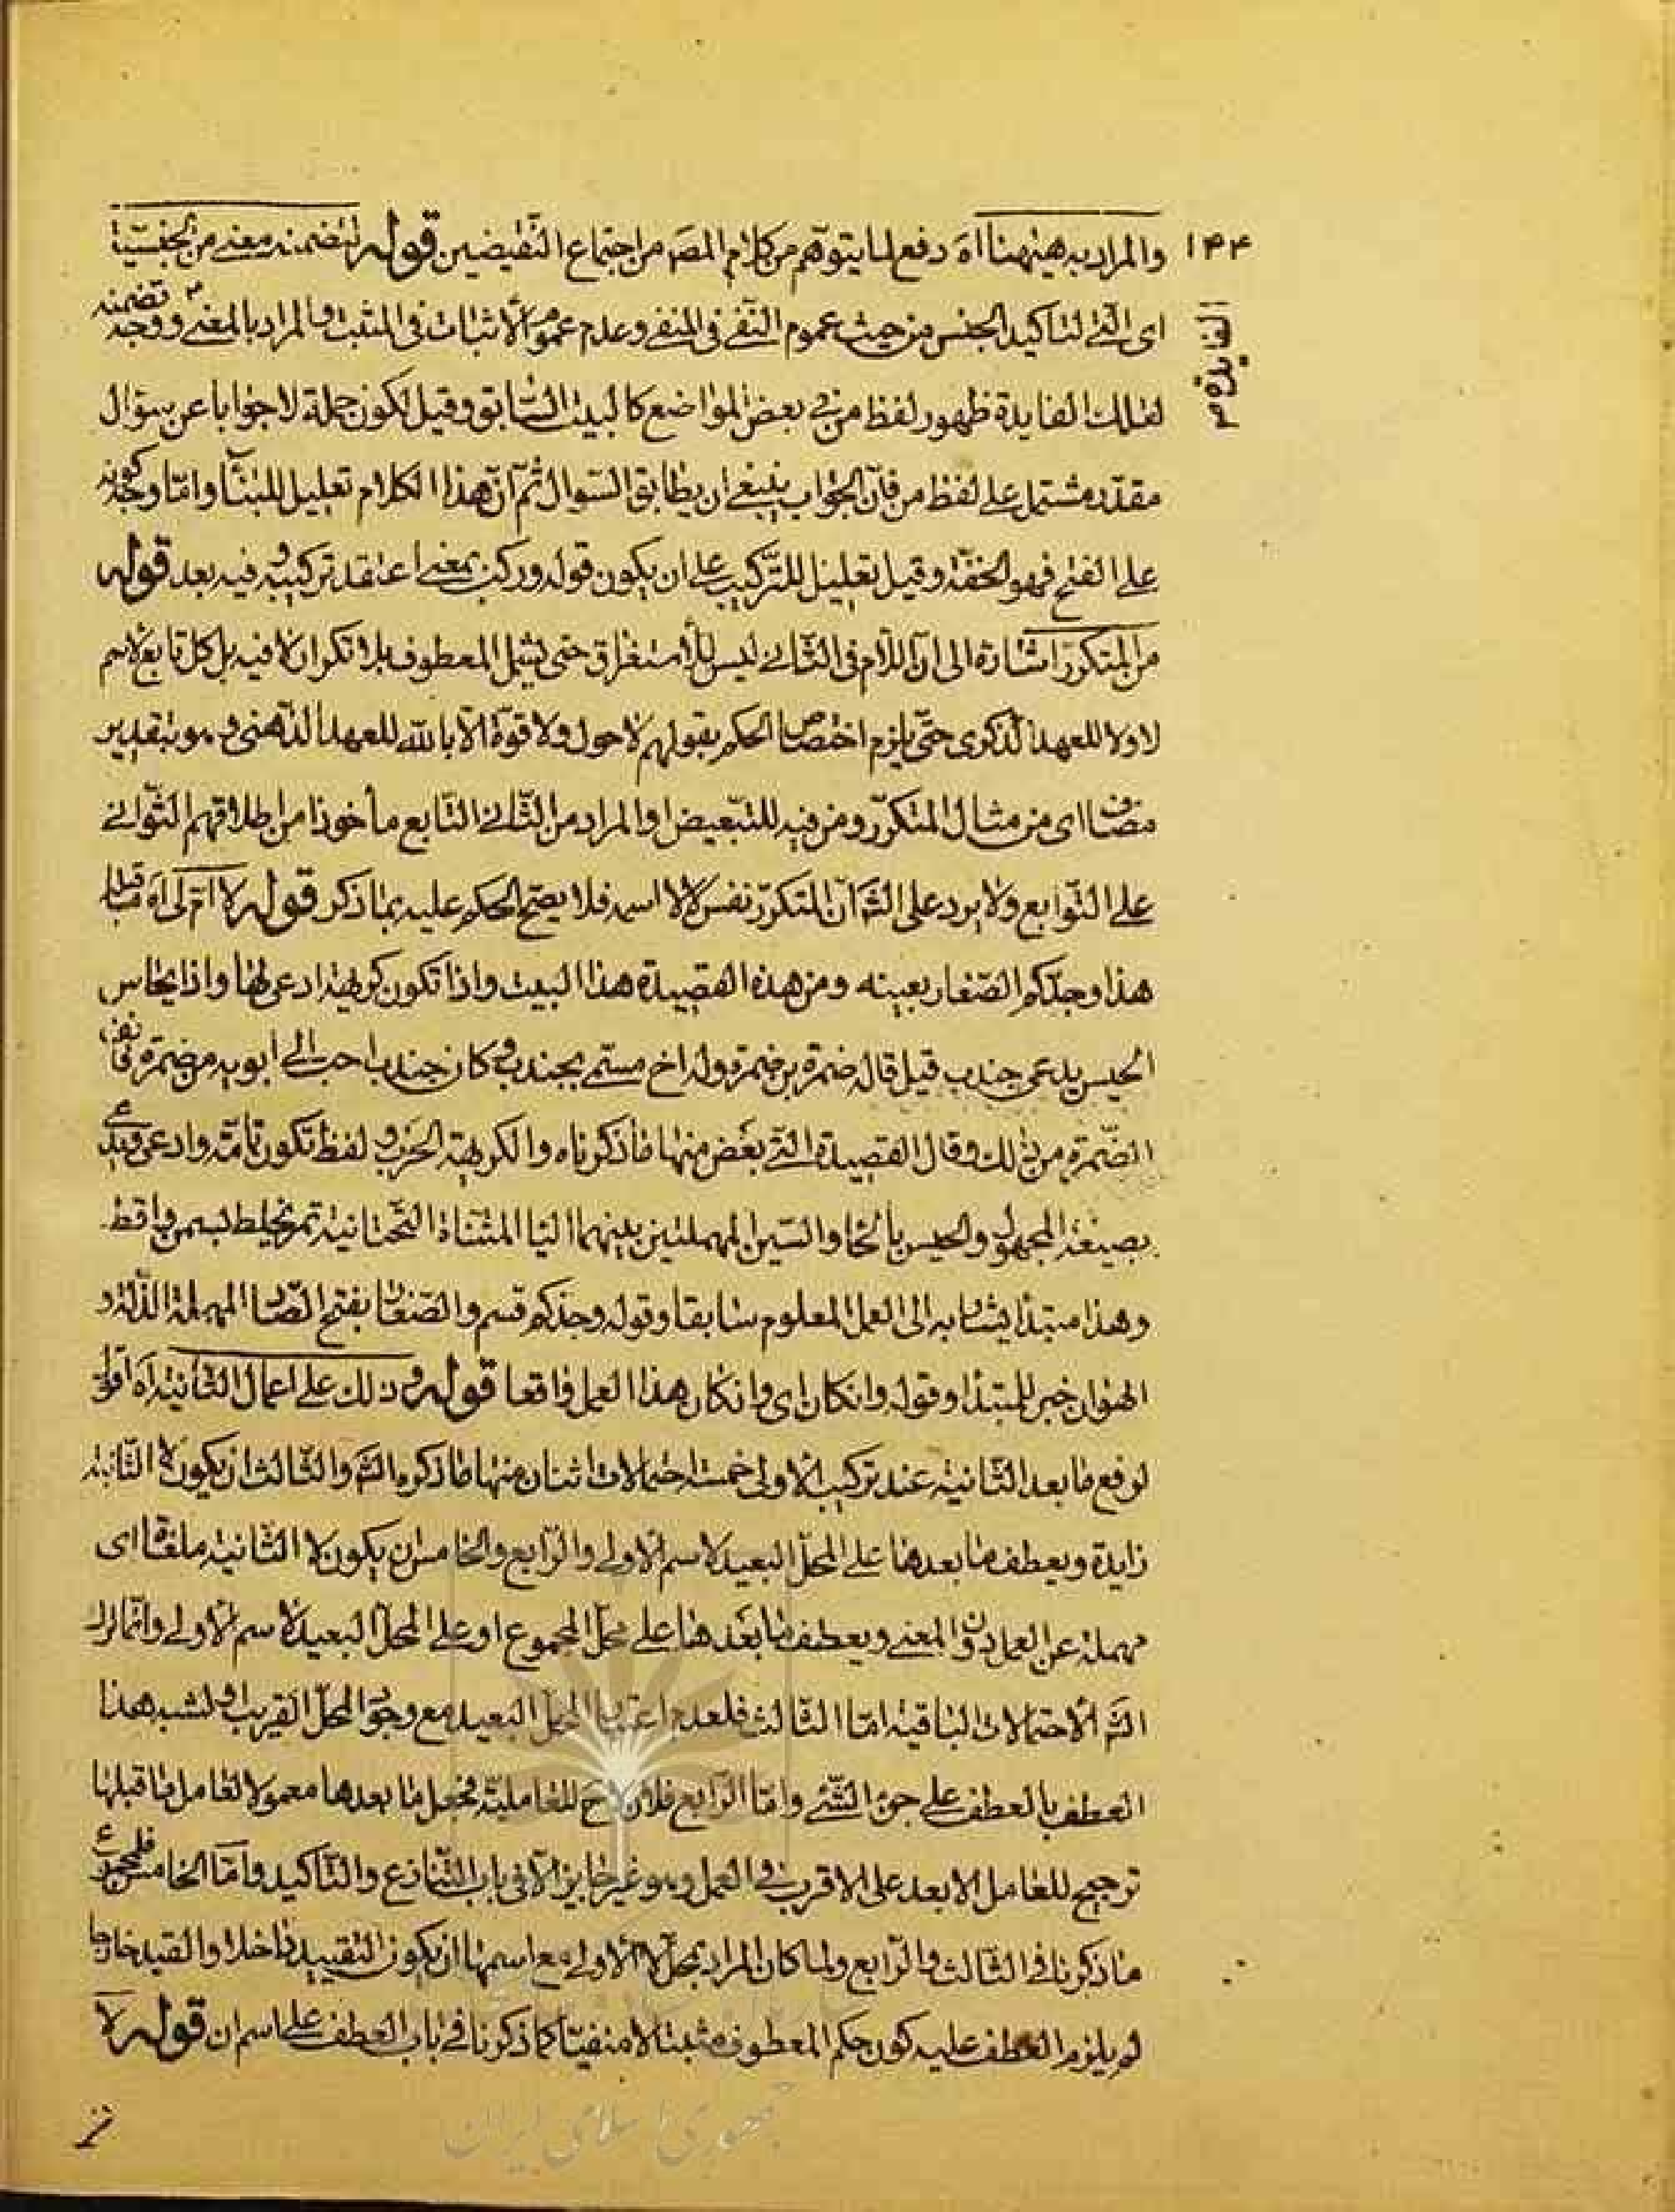 ١۴۴
الفايدة م
والمراد به هيهنا اه دفع لما يتوهم من كلام المصَ من اجتماع النقيضين قوله لتضمنه معنى من الجنسية
اى التى لتاكيد الجنس من حيث عموم النفى فى المنفى وعدم عموم الاثبات فى المثبت والمراد بالمعنى ووجه تضمنه
لتلك الفايدة ظهور لفظ من فى بعض المواضع كالبيت السابق وقيل لكون جملة لا جوابا عن سؤال
مقدر مشتمل على لفظ من فان الجواب ينبغى ان يطابق السوال ثم ان هذا الكلام تعليل للبناء واما وجه كونه
على الفتح فهو الخفة وقيل تعليل للتركيب على ان يكون قوله وركب بمعنى اعتقد تركيبه وفيه بعد قوله
من المتكرر اشارة الى ان اللام فى الثانى ليس للاستغراق حتى يشمل المعطوف بلا تكرار لا فيه بل كل تابع لاسم
لا ولا للعهد الذكرى حتى يلزم اختصاص الحكم بقولهم لا حول ولا قوة الا بالله للعهد الذهنى وهو بتقدير
مضاف اى من مثال المتكرر ومن فيه للتبعيض او المراد من الثانى التابع مأخوذا من اطلاقهم الثوانى
على التوابع ولا يرد على الشَ ان المتكرر نفس لا لا اسمه فلا يصح الحكم عليه بما ذكر قوله لا ام لى اه قبله
هذا وجدكم الصغار بعينه ومن هذه القصيدة هذا البيت واذا تكون كريهة ادعى لها واذا يحاس
الحيس يدعى جندب قيل قاله ضمرة بن ضمرة وله اخ مسمى بجندب وكان جندب احب الى ابويه من ضمرة فانف
الضمرة من ذلك وقال القصيدة التى بعض منها ما ذكرناه والكريهة الحرب ولفظ تكون تامة وادعى ويدعى
بصيغة المجهول والحيس بالحا والسين المهملتين بينهما اليا المثناة التحتانية تمر يخلط بسمن واقط
وهذا مبتدا يشار به الى العمل المعلوم سابقا وقوله وجدكم قسم والصغار بفتح الصاد المهملة الذلة و
الهوان خبر للمبتدا وقوله وان كان اى وان كان هذا العمل واقعا قوله وذلك على اعمال الثانية اه اقول
لرفع ما بعد الثانية عند تركيب الاولى خمسة احتمالات اثنان منها ما ذكره الشَ والثالث ان يكون لا الثانية
زايدة ويعطف ما بعدها على المحل البعيد لاسم الاولى والرابع والخامس ان يكون لا الثانية ملغاة اى
مهملة عن العمل دون المعنى ويعطف ما بعدها على محل المجموع او على المحل البعيد لاسم الاولى وانما ترك
الشَ الاحتمالات الباقية اما الثالث فلعدم اعتبار المحل البعيد مع وجود المحل القريب ولشبه هذا
العطف بالعطف على جزء الشئ واما الرابع فلان لا ح للعاملية فجعل ما بعدها معمولا لعامل ما قبلها
ترجيح للعامل الابعد على الاقرب فى العمل وهو غير جايز الا فى باب التنازع والتاكيد واما الخامس فلمجموع
ما ذكرنا فى الثالث والرابع ولما كان المراد بمحل لا الاولى مع اسمها ان يكون التقييد داخلا والقيد خارجا
لم يلزم العطف عليه كون حكم المعطوف مثبتا لا منفيا كما ذكرنا فى باب العطف على اسم ان قوله لا
جمهوری اسلامی ایران